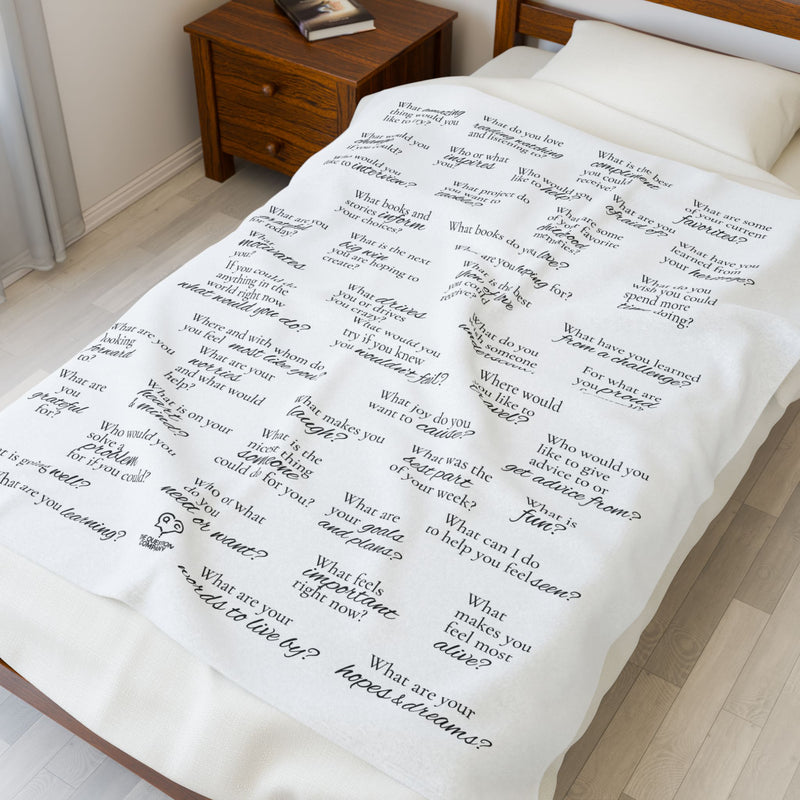 What amazing
thing would you
like to try?
What do you love
reading, watching
and listening to?
What would you
change
if you could?
Who or what
inspires
you?
What is the best
compliment
you could
receive?
who would you
like to interview?
Who would you
like to help?
What project do
you want to
What are you
afraid of?
What are some
of your current
favorites?
What books and
stories inform
your choices?
What are some
of your favorite
childhood
memories?
What are you
grateful
for today?
What books do you love?
What have you
learned from
your heritage?
What
motivates
you?
What is the next
big win
you are hoping to
create?
What are you hoping for?
What is the best
you could
receive?
What do you
wish you could
spend more
time doing?
If you could do
anything in the
world right now
what would you do?
What drives
you or drives
you crazy?
What would you
try if you knew
you wouldn't fail?
What do you
wish someone
What have you learned
from a challenge?
Where and with whom do
you feel most like you?
For what are
you proud
What are you
looking
forward
to?
What are your
worries
and what would
help?
Where would
you like to
travel?
What are
you
grateful
for?
What is on your
heart &
mind?
What makes you
laugh?
What joy do you
want to cause?
Who would you
like to give
advice to or
get advice from?
Who would you
solve a
problem
for if you could?
What is the
nicest thing
someone
could do for you?
What was the
best part
of your week?
What is
fun?
What is going well?
What are you learning?
THE QUESTION
COMPANY
Who or what
do you
need or want?
What are
your goals
and plans?
What can I do
to help you feel seen?
What are your
words to live by?
What feels
important
right now?
What
makes you
feel most
alive?
What are your
hopes & dreams?